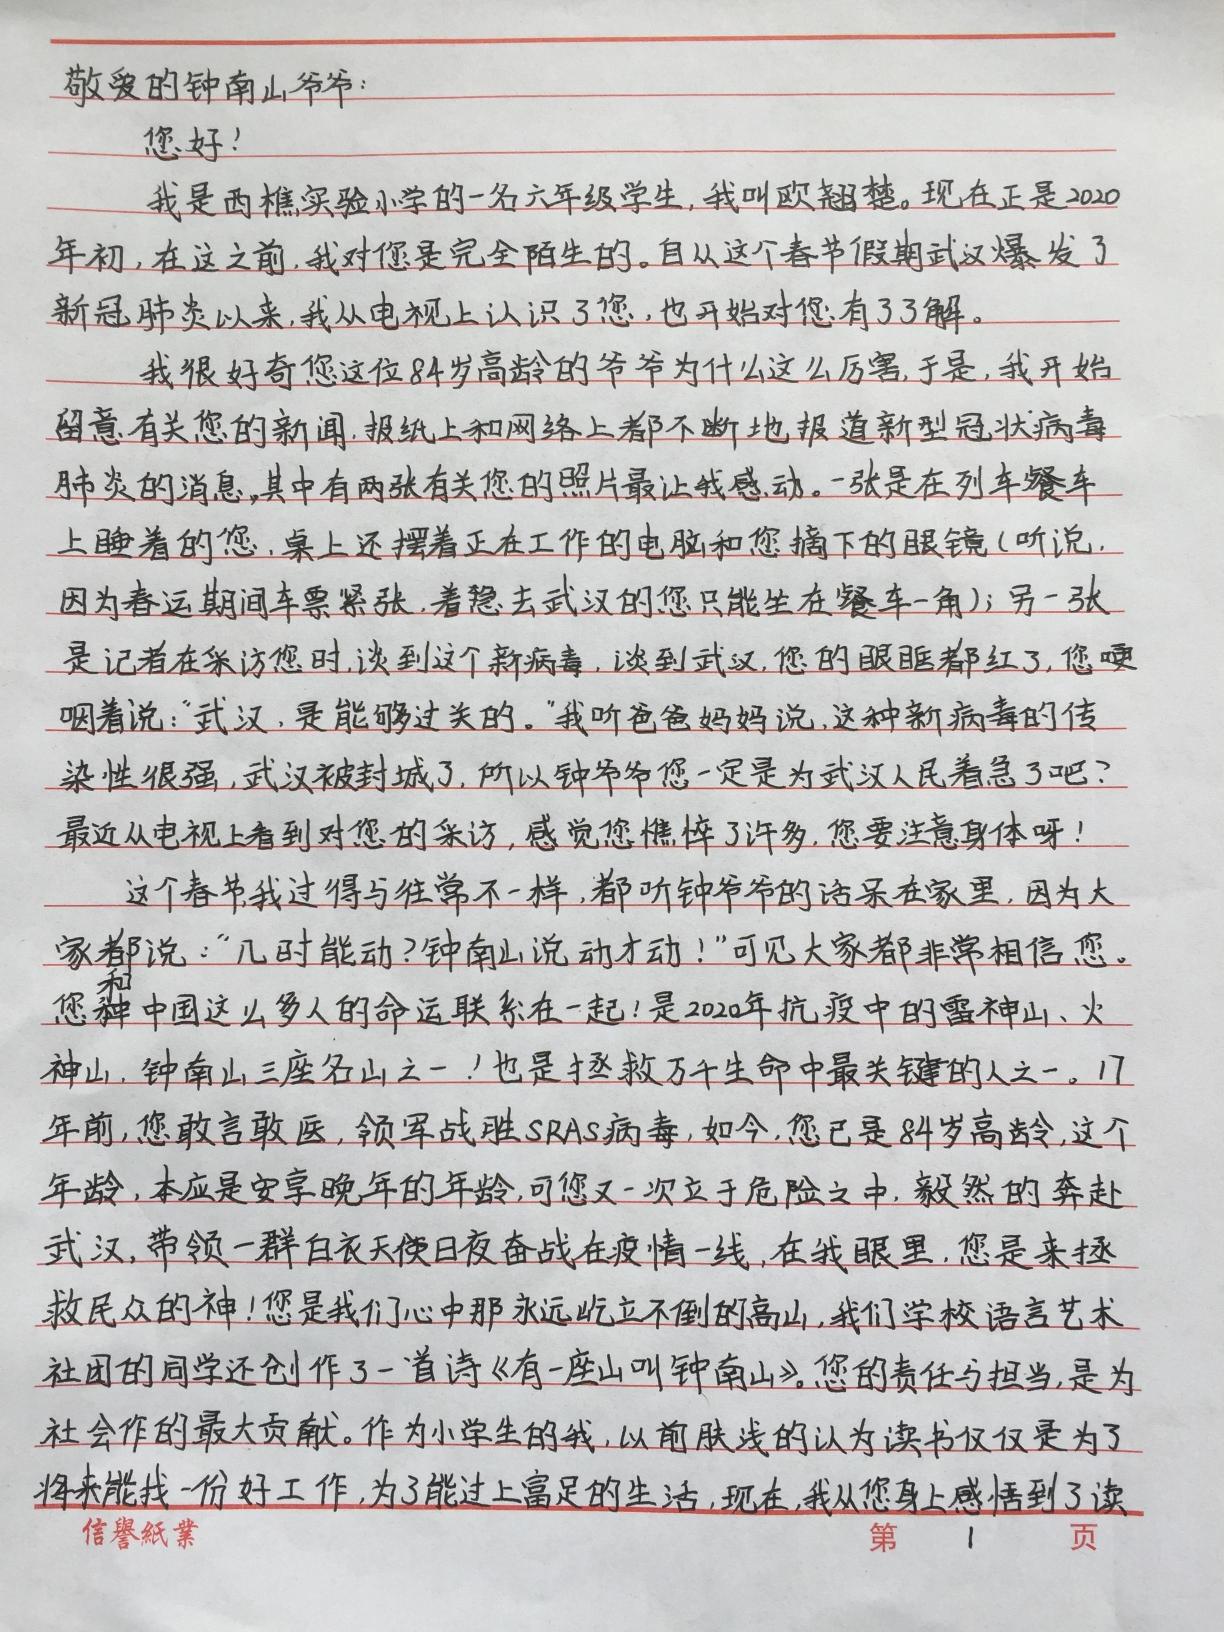 敬爱的钟南山爷爷：
您好！
我是西樵实验小学的一名六年级学生，我叫欧翘楚。现在正是2020
年初，在这之前，我对您是完全陌生的。自从这个春节假期武汉爆发了
新冠肺炎以来，我从电视上认识了您，也开始对您有了了解。
我很好奇您这位84岁高龄的爷爷为什么这么厉害，于是，我开始
留意有关您的新闻，报纸上和网络上都不断地报道新型冠状病毒
肺炎的消息，其中有两张有关您的照片最让我感动。一张是在列车餐车
上睡着的您，桌上还摆着正在工作的电脑和您摘下的眼镜（听说，
因为春运期间车票紧张，着急去武汉的您只能坐在餐车一角）；另一张
是记者在采访您时，谈到这个新病毒，谈到武汉，您的眼眶都红了，您哽
咽着说：“武汉，是能够过关的。”我听爸爸妈妈说，这种新病毒的传
染性很强，武汉被封城了，所以钟爷爷您一定是为武汉人民着急了吧？
最近从电视上看到对您的采访，感觉您憔悴了许多，您要注意身体呀！
这个春节，我过得与往常不一样，都听钟爷爷的话呆在家里，因为大
家都说：“几时能动？钟南山说动才动！”可见大家都非常相信您。
您和中国这么多人的命运联系在一起！是2020年抗疫中的雷神山、火
神山，钟南山三座名山之一！也是拯救万千生命中最关键的人之一。17
年前，您敢言敢医，领军战胜SRAS病毒，如今，您已是84岁高龄，这个
年龄，本应是安享晚年的年龄，可您又一次立于危险之中，毅然的奔赴
武汉，带领一群白衣天使日夜奋战在疫情一线，在我眼里，您是来拯
救民众的神！您是我们心中那永远屹立不倒的高山，我们学校语言艺术
社团的同学还创作了一首诗《有一座山叫钟南山》。您的责任与担当，是为
社会作的最大贡献。作为小学生的我，以前肤浅的认为读书仅仅是为了
将来能找一份好工作，为了能过上富足的生活，现在，我从您身上感悟到了读
信譽紙業 第 1 页